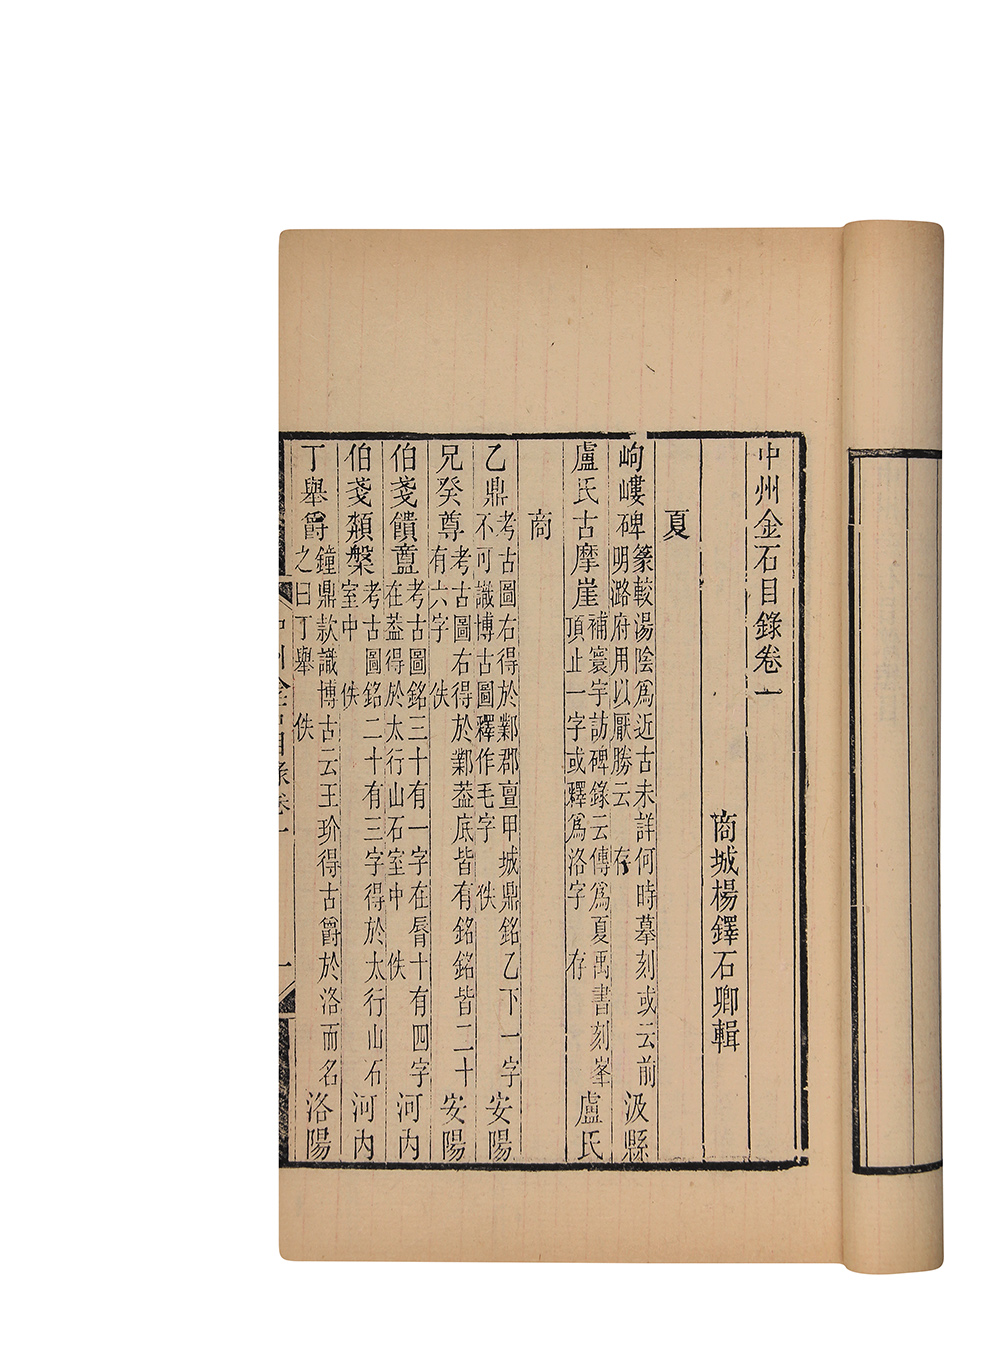 中州金石目錄卷一
商城楊鐸石卿輯
夏
岣嶁碑 篆較湯陰爲近古未詳何時摹刻或云前 汲縣
明潞府用以厭勝云 存
盧氏古摩崖 補寰宇訪碑錄云傳爲夏禹書刻峯 盧氏
頂止一字或釋爲洛字 存
商
乙鼎 考古圖右得於鄴郡亶甲城鼎銘乙下一字 安陽
不可識博古圖釋作毛字 佚
兄癸尊 考古圖右得於鄴葢底皆有銘銘皆二十 安陽
有六字 佚
伯戔饋盦 考古圖銘三十有一字在脣十有四字 河內
在葢得於太行山石室中 佚
伯戔頮槃 考古圖銘二十有三字得於太行山石 河內
室中 佚
丁舉爵 鐘鼎款識博古云王玠得古爵於洛而名 洛陽
之曰丁舉 佚
中州金石目錄卷一
一